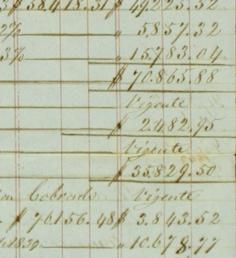 $ 38.418.31 $ 49.225.32
2% " 5.857.32
3% " 15.783.04
$ 70.865.88
Vigente
$ 2.482.95
Vigente
$ 35.829.50
Cobrado Vigente
$ 76156.48 $ 3.843.52
1830 " 10.678.77